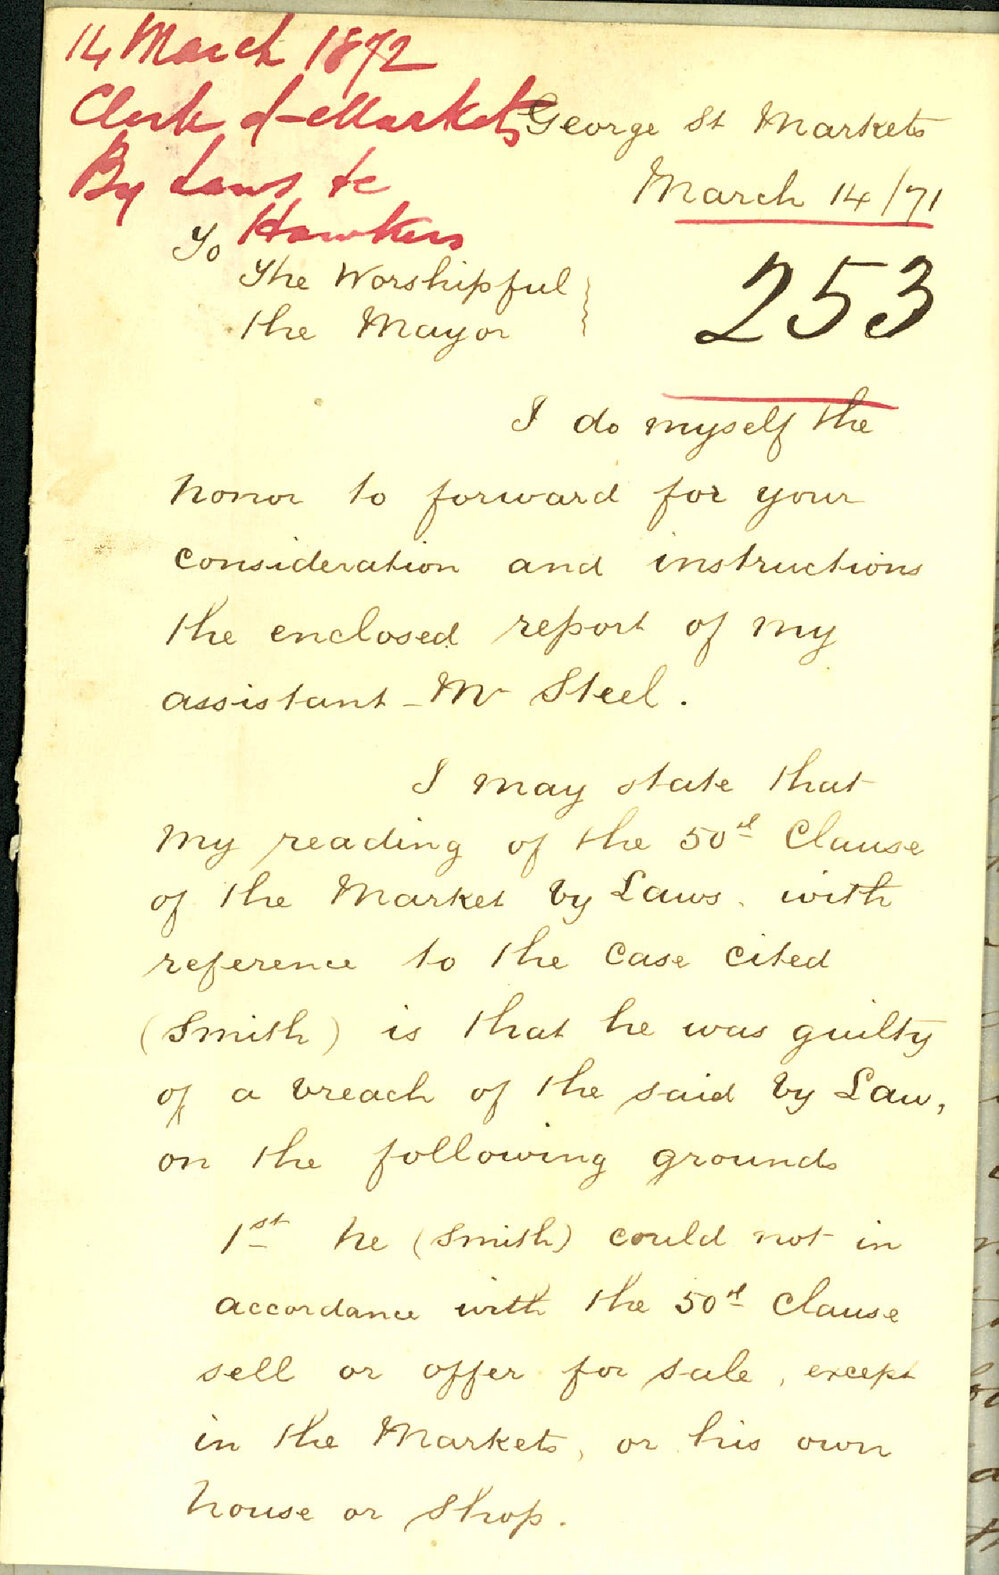 14 March 1872
Clerk of Markets
By Laws &c
Hawkers
George St Markets
March 14/71
253
To
The Worshipful
the Mayor
I do myself the
honor to forward for your
consideration and instructions
the enclosed report of my
assistant - Mr Steel.
I may state that
my reading of the 50d Clause
of the Market by Laws, with
reference to the case cited
(Smith) is that he was guilty
of a breach of the said by Law,
on the following grounds
1st he (Smith) could not in
accordance with the 50d Clause
sell or offer for sale, except
in the Markets, or his own
house or shop.